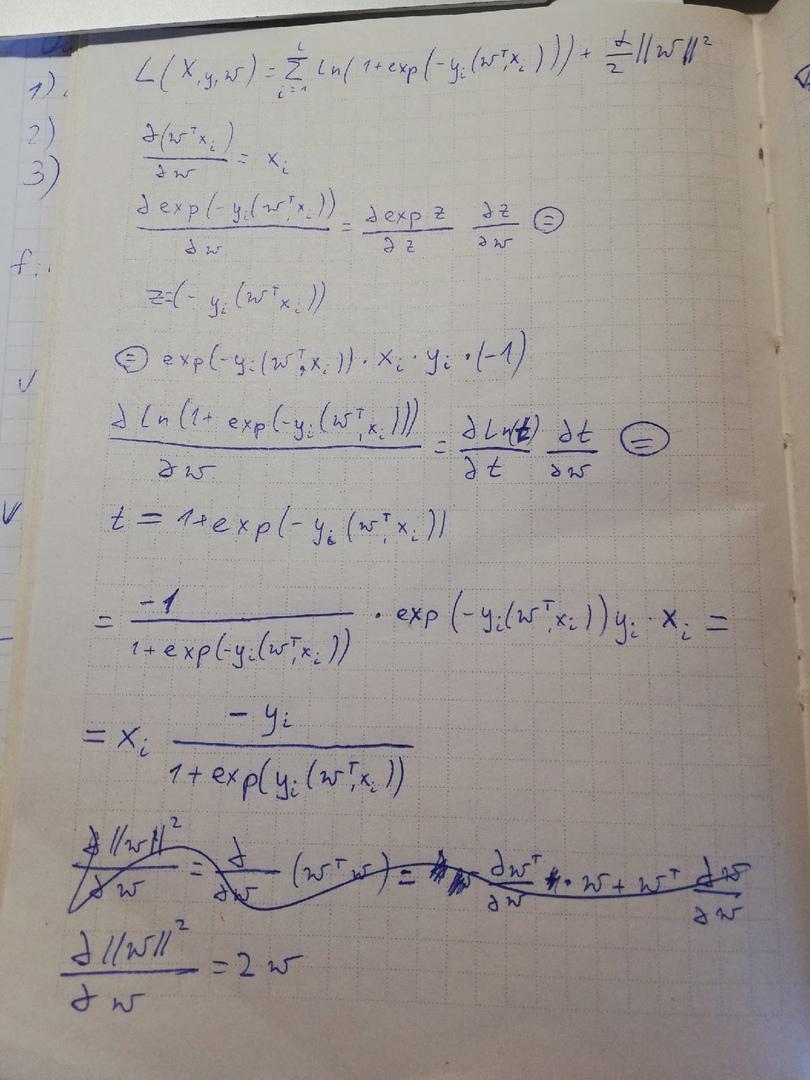 1).
2)
3)
f:.
V
V
L(X, y, w) = \sum_{i=1}^{l} ln(1+exp(-y_i(w^T, x_i))) + \frac{λ}{2}||w||^2
\frac{∂(w^T x_i)}{∂w} = x_i
\frac{∂exp(-y_i(w^T, x_i))}{∂w} = \frac{∂exp z}{∂z} \frac{∂z}{∂w} ⊜
z=(-y_i(w^T x_i))
⊜ exp(-y_i(w^T, x_i)) · x_i · y_i · (-1)
\frac{∂ln(1+ exp(-y_i(w^T, x_i)))}{∂w} = \frac{∂ln(t)}{∂t} \frac{∂t}{∂w} ⊜
t = 1+exp(-y_i(w^T, x_i))
= \frac{-1}{1+exp(-y_i(w^T, x_i))} · exp(-y_i(w^T, x_i)) y_i · x_i =
= x_i \frac{-y_i}{1+exp(y_i(w^T, x_i))}
\frac{∂||w||^2}{∂w} = \frac{∂}{∂w} (w^T w) = \frac{∂w^T}{∂w} · w + w^T \frac{∂w}{∂w}
\frac{∂||w||^2}{∂w} = 2w